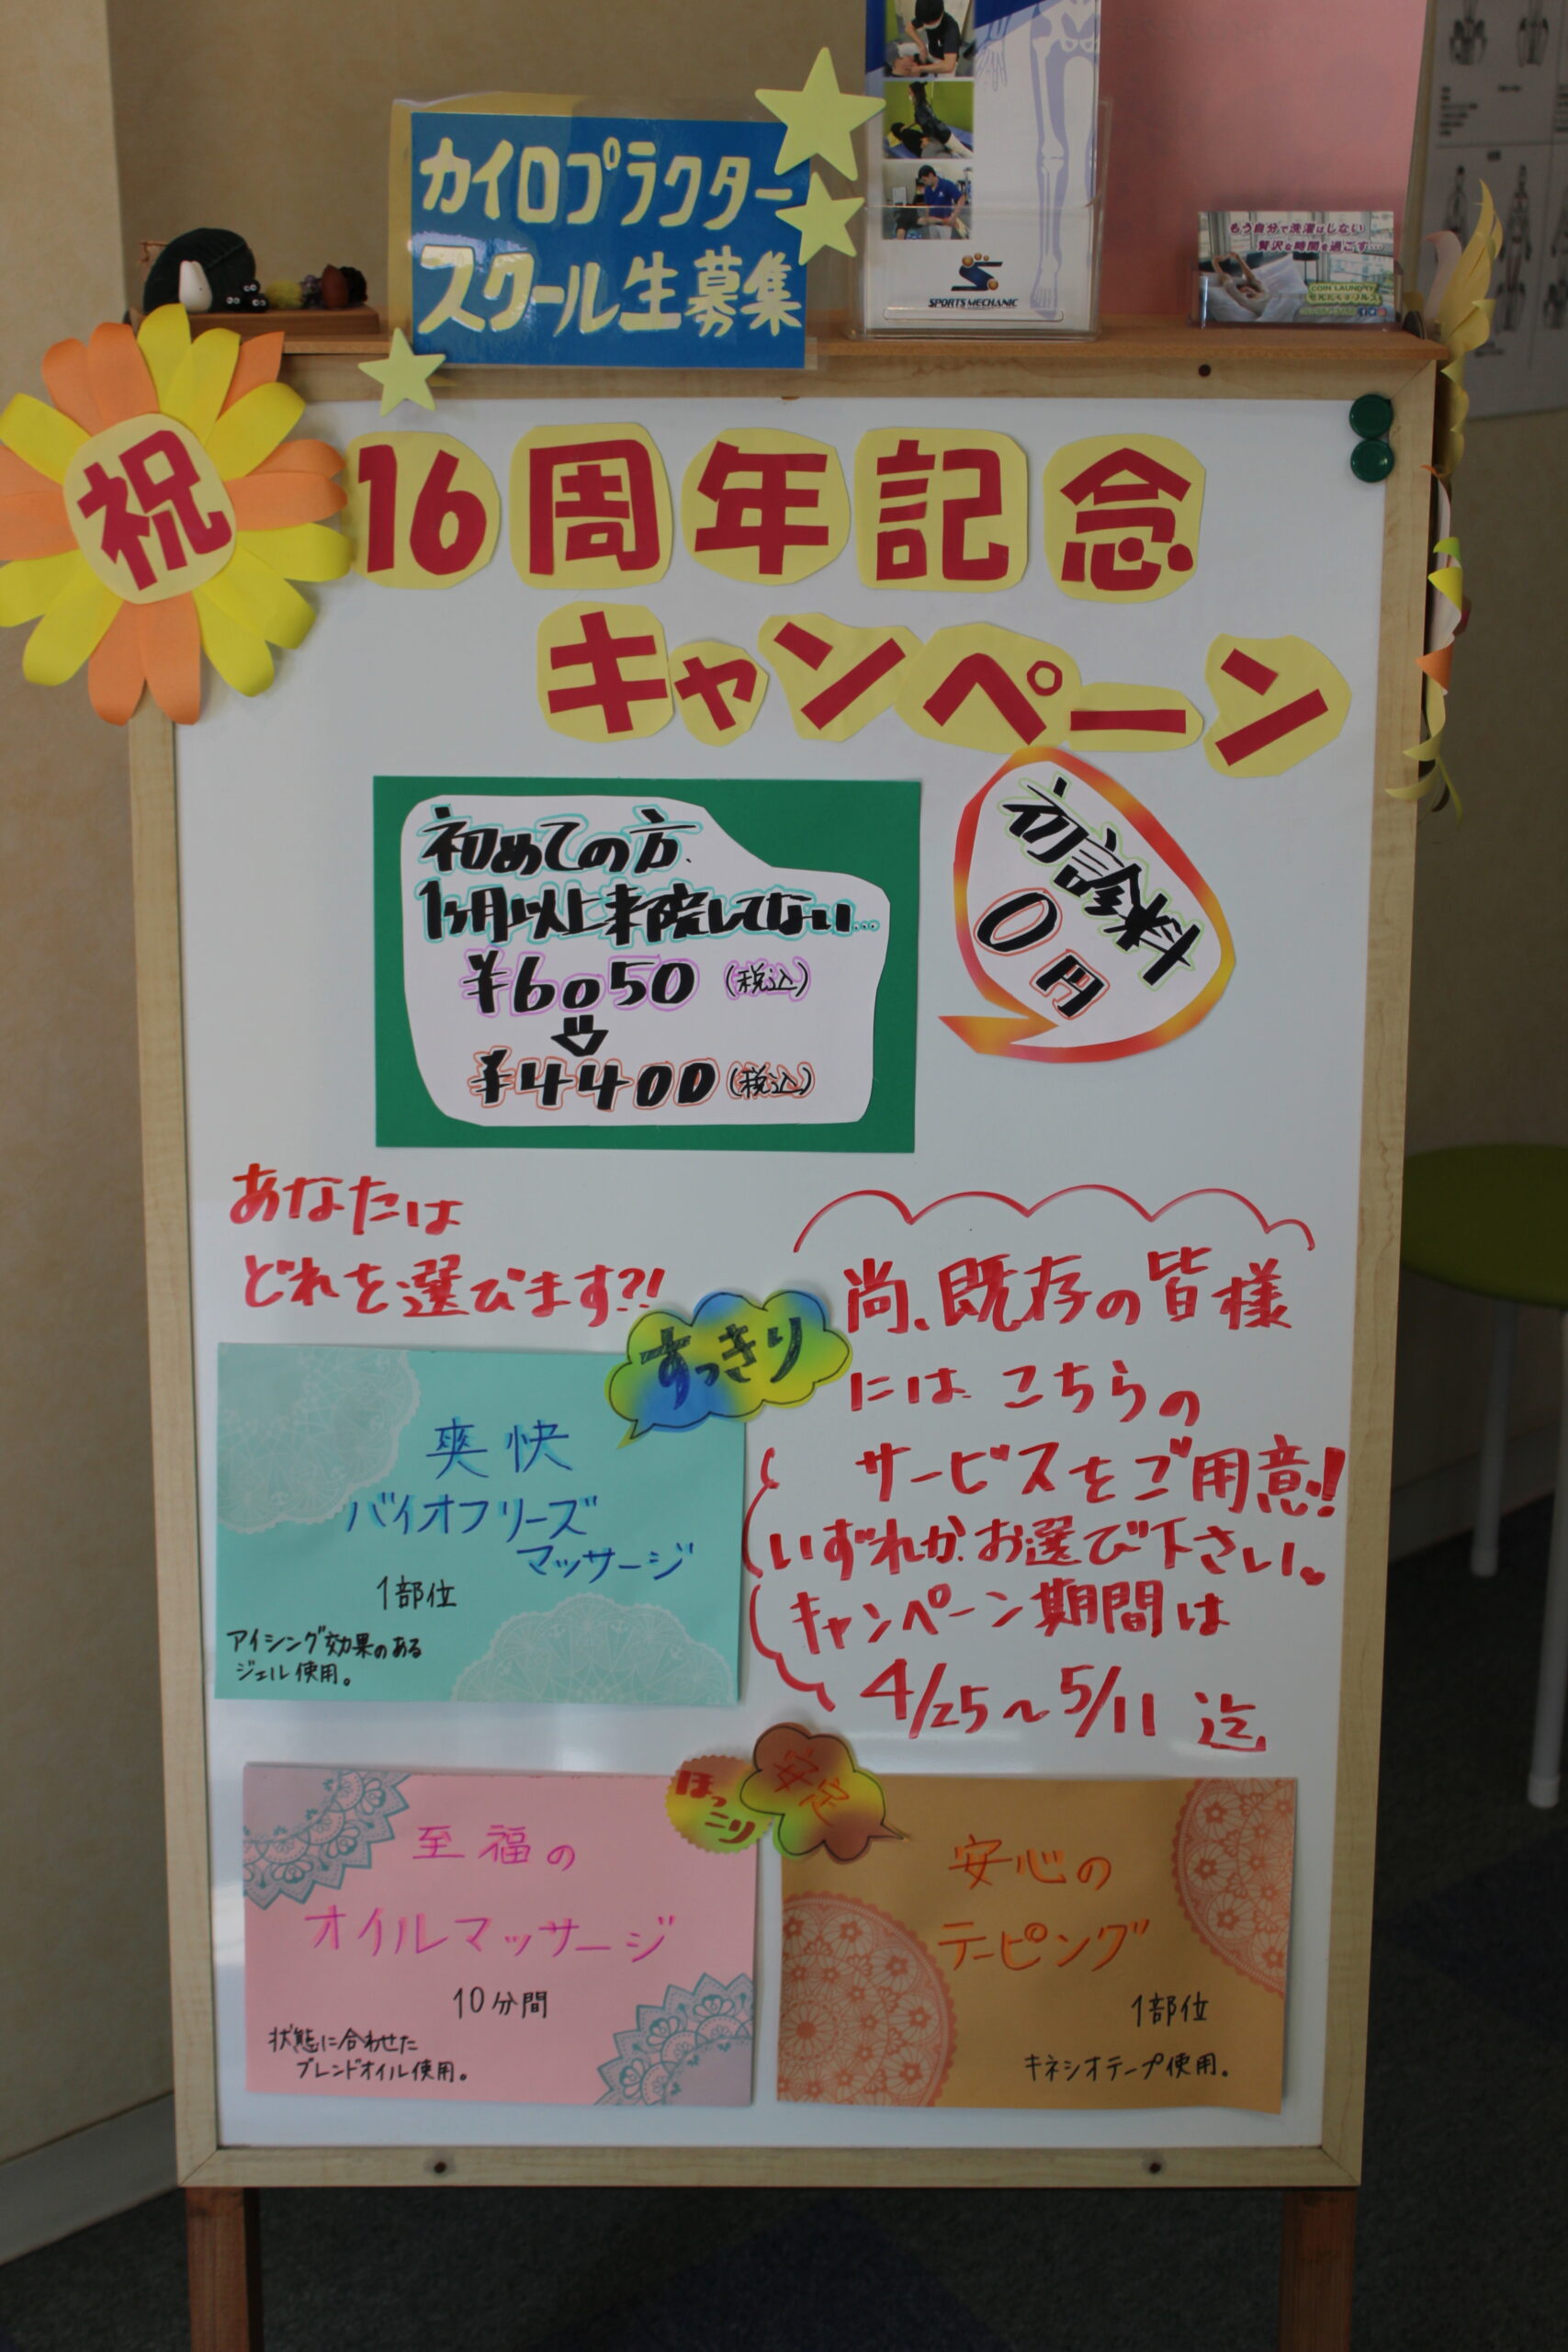 カイロプラクター
スクール生募集
SPORTS MECHANIC
もう自分で洗濯はしない
贅沢な時間を過ごす…
COIN LAUNDRY
祝
16周年記念
キャンペーン
初めての方、
1ヶ月以上来院してない…
¥6050（税込）
¥4400（税込）
初診料
0円
あなたは
どれを選びます?!
すっきり
爽快
バイオフリーズ
マッサージ
1部位
アイシング効果のある
ジェル使用。
尚、既存の皆様
には こちらの
サービスをご用意!
いずれか、お選び下さい。
キャンペーン期間は
4/25～5/11 迄
ほっこり
至福の
オイルマッサージ
10分間
状態に合わせた
ブレンドオイル使用。
安定
安心の
テーピング
1部位
キネシオテープ使用。